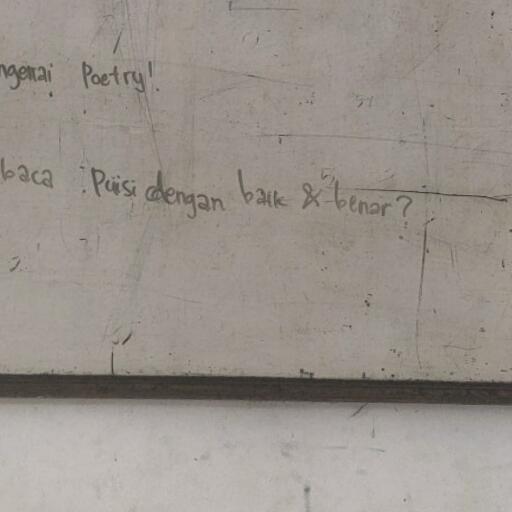 ngenai Poetry!
baca Puisi dengan baik & benar?